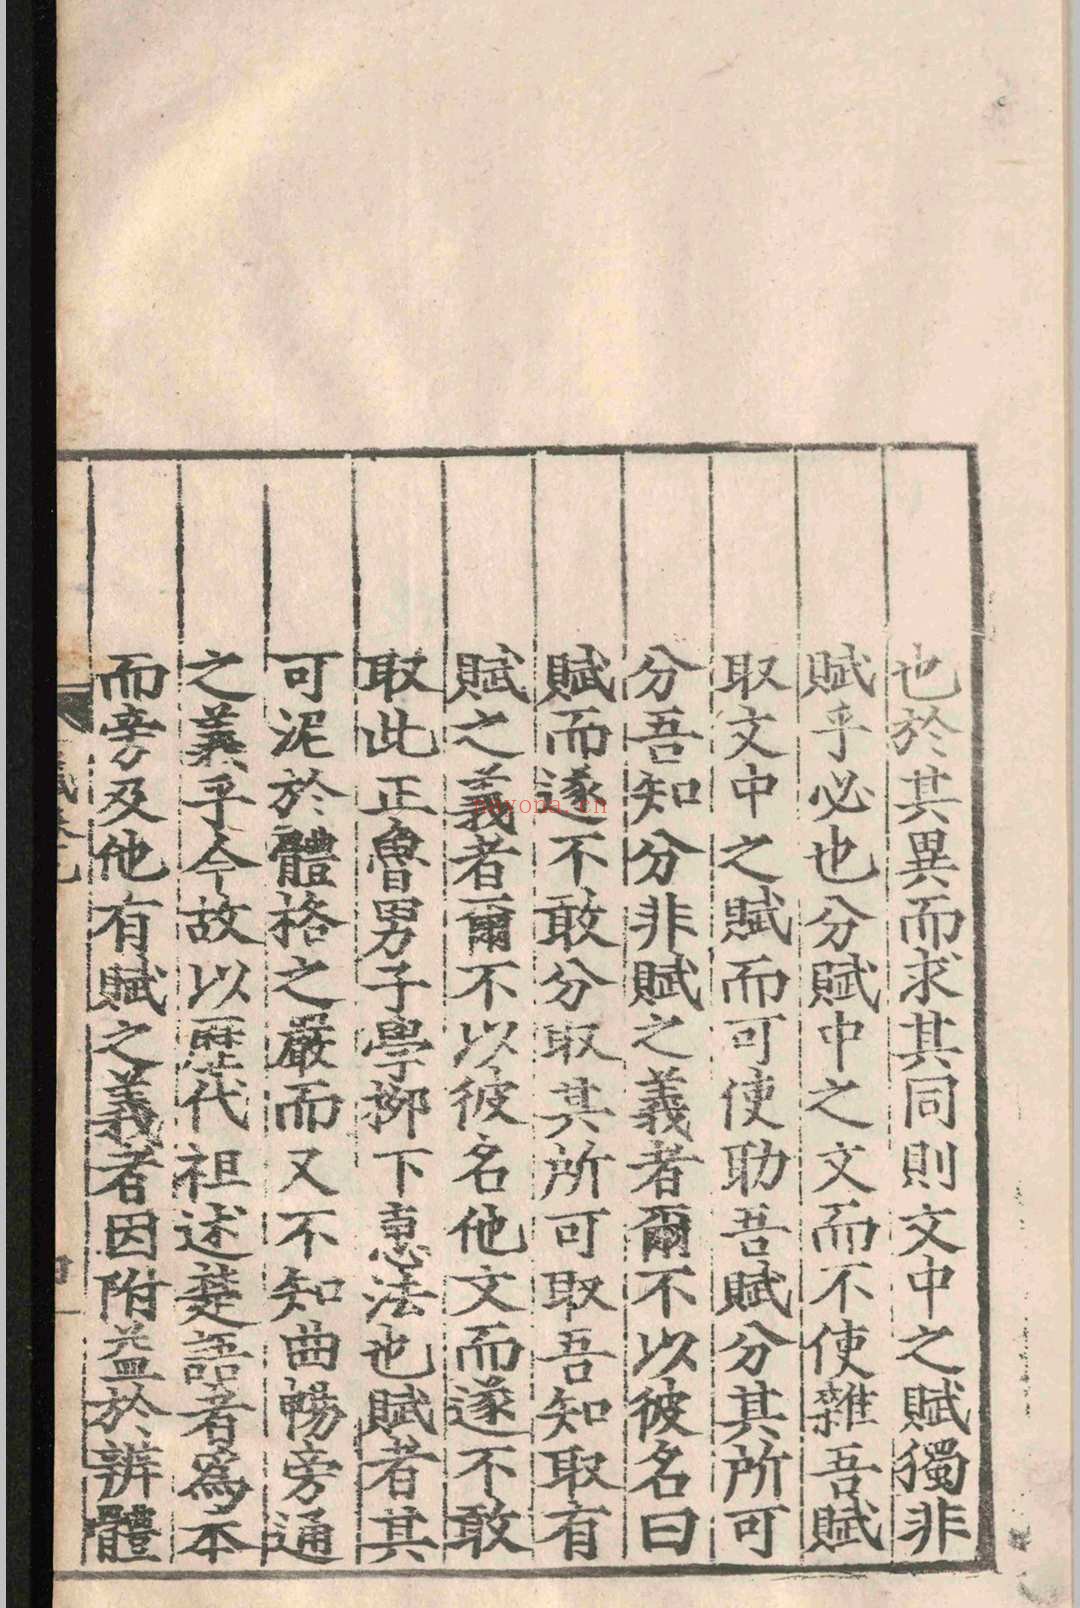 也於其異而求其同則文中之賦獨非
賦乎必也分賦中之文而不使雜吾賦
取文中之賦而可使助吾賦分其所可
分吾知分非賦之義者爾不以彼名曰
賦而遂不敢分取其所可取吾知取有
賦之義者爾不以彼名他文而遂不敢
取此正魯男子學栁下惠法也賦者其
可泥於體格之嚴而又不知曲暢旁通
之義乎今故以歷代祖述楚語者爲本
而旁及他有賦之義者因附益於辨體